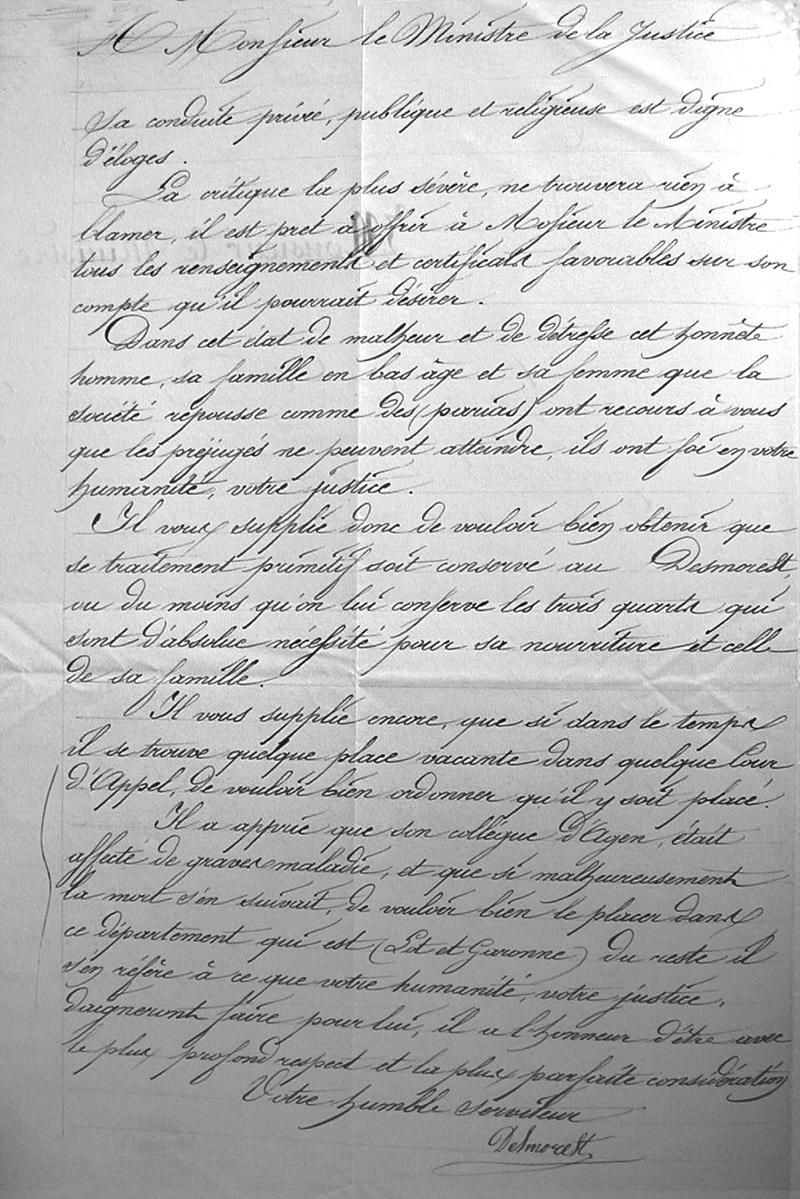 A Monsieur le Ministre de la Justice
Sa conduite privé, publique et religieuse est digne
d'éloges.
La critique la plus sévère, ne trouvera rien à
blamer, il est prêt à offrir à Mosieur le Ministre
tous les renseignements et certificats favorables sur son
compte qu'il pourrait désirer.
Dans cet état de malheur et de détresse cet honnête
homme, sa famille en bas âge et sa femme que la
société repousse comme des (parias) ont recours à vous
que les préjugés ne peuvent atteindre, ils ont foi en votre
humanité, votre justice.
Il vous supplie donc de vouloir bien obtenir que
se traitement primitif soit conservé au Desmorest,
ou du moins qu'on lui conserve les trois quarts qui
sont d'absolue nécessité pour sa nourriture et cell
de sa famille.
Il vous supplie encore, que si dans le temps
il se trouve quelque place vacante dans quelque Cour
d'Appel, de vouloir bien ordonner qu'il y soit placé.
Il a apprie que son collègue d'Agen, était
affecté de graves maladie, et que si malheureusement
la mort s'en suivait, de vouloir bien le placer dans
ce département qui est (Lot et Garonne) du reste il
s'en réfère à ce que votre humanité, votre justice,
daigneront faire pour lui, il a l'honneur d'être avec
le plus profond respect et la plus parfaite considération
Votre humble serviteur
Desmorest